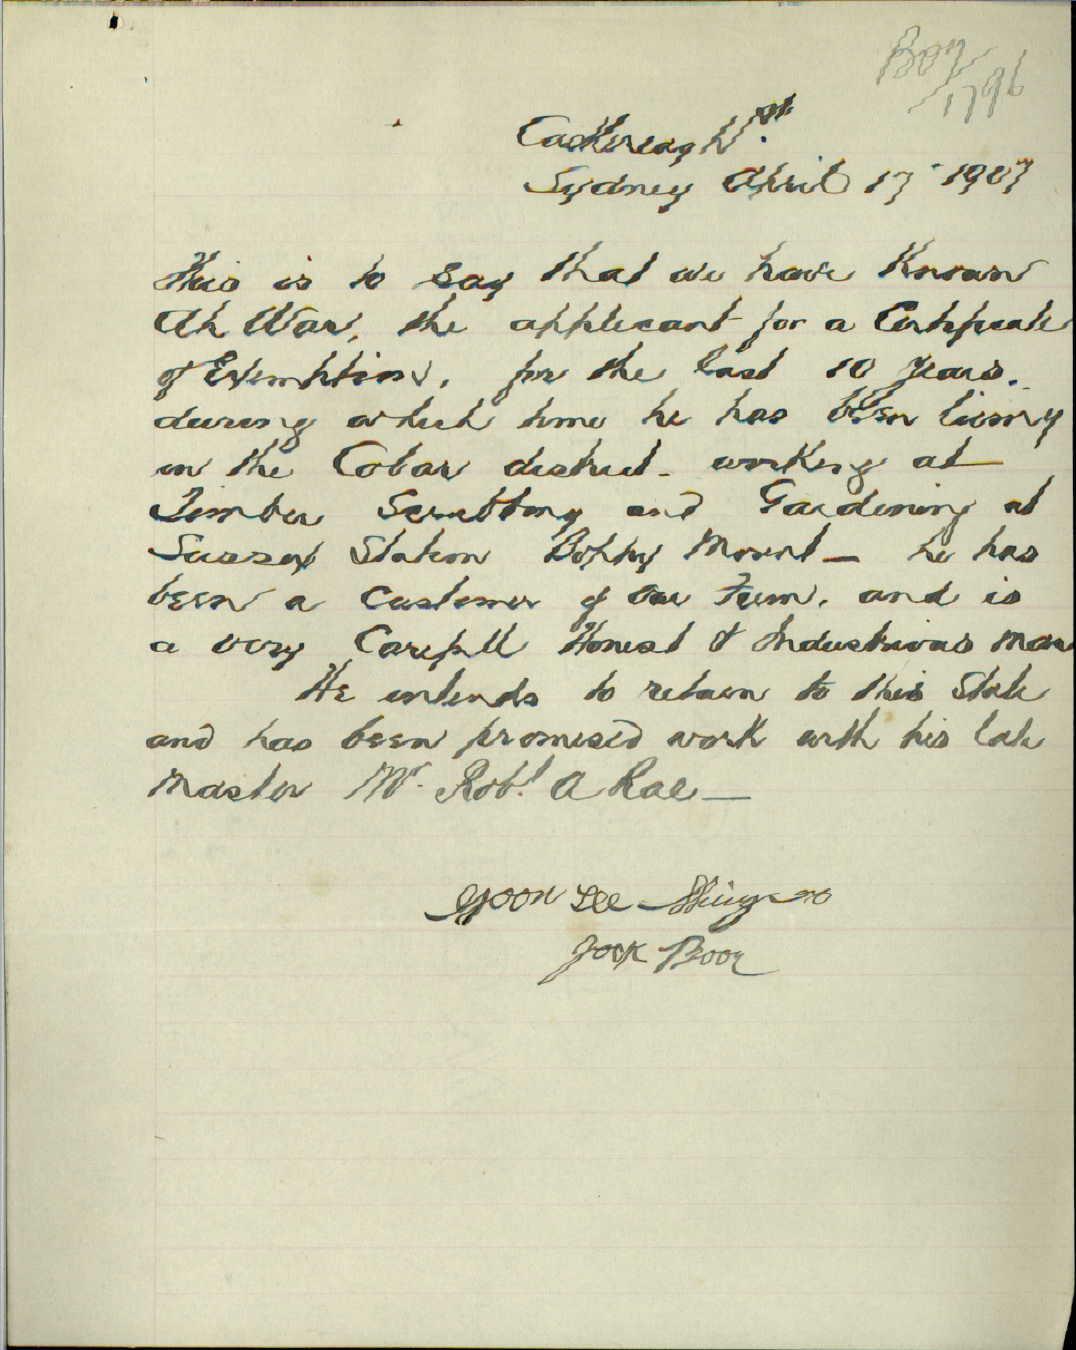 B07/1796
Castlereagh St.
Sydney April 17 1907
This is to say that we have Known
Ah War, the applicant for a Certificate
of Exemption, for the last 10 years.
during which time he has been living
in the Cobar district - working at
Timber Scrubbing and Gardening at
Sussex Station Boppy Mount - he has
been a Customer of our Firm. and is
a very Carefull Honest & Industrious man
He intends to return to this State
and has been promised work with his late
Master Mr. Robt. A Rae -
Yoon Lee Shing
Jock Booy